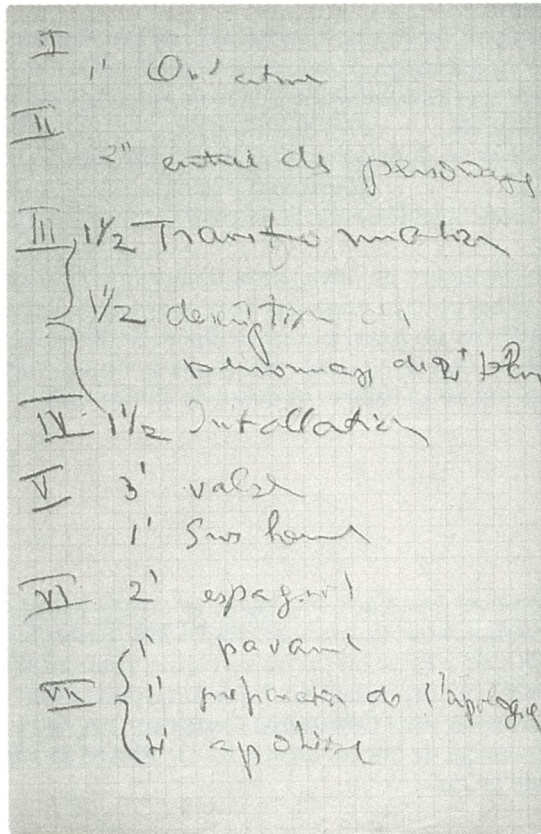 I
1' Ouverture
II
2" entrée des personnages
III 1'1/2 Transformation
1'/2 description des
personnages de 2d plan
IV 1'1/2 Installation
V 3' valse
1'
VI 2' espagnol
1' pavane
VII 1' préparation de l'apologie
4'